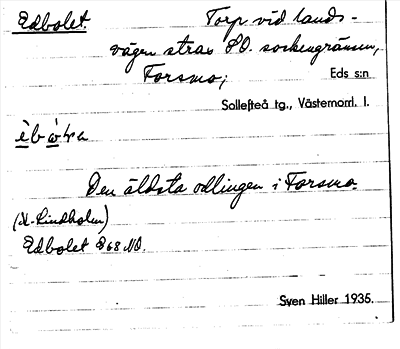 Edbolet. Torp vid lands-
vägen strax SO. sockengränsen,
Forsmo; Eds s:n
Sollefteå tg., Västernorrl. l.
Den äldsta odlingen i Forsmo.
(N. Lindholm)
Edbolet 868 NO.
Sven Hiller 1935.